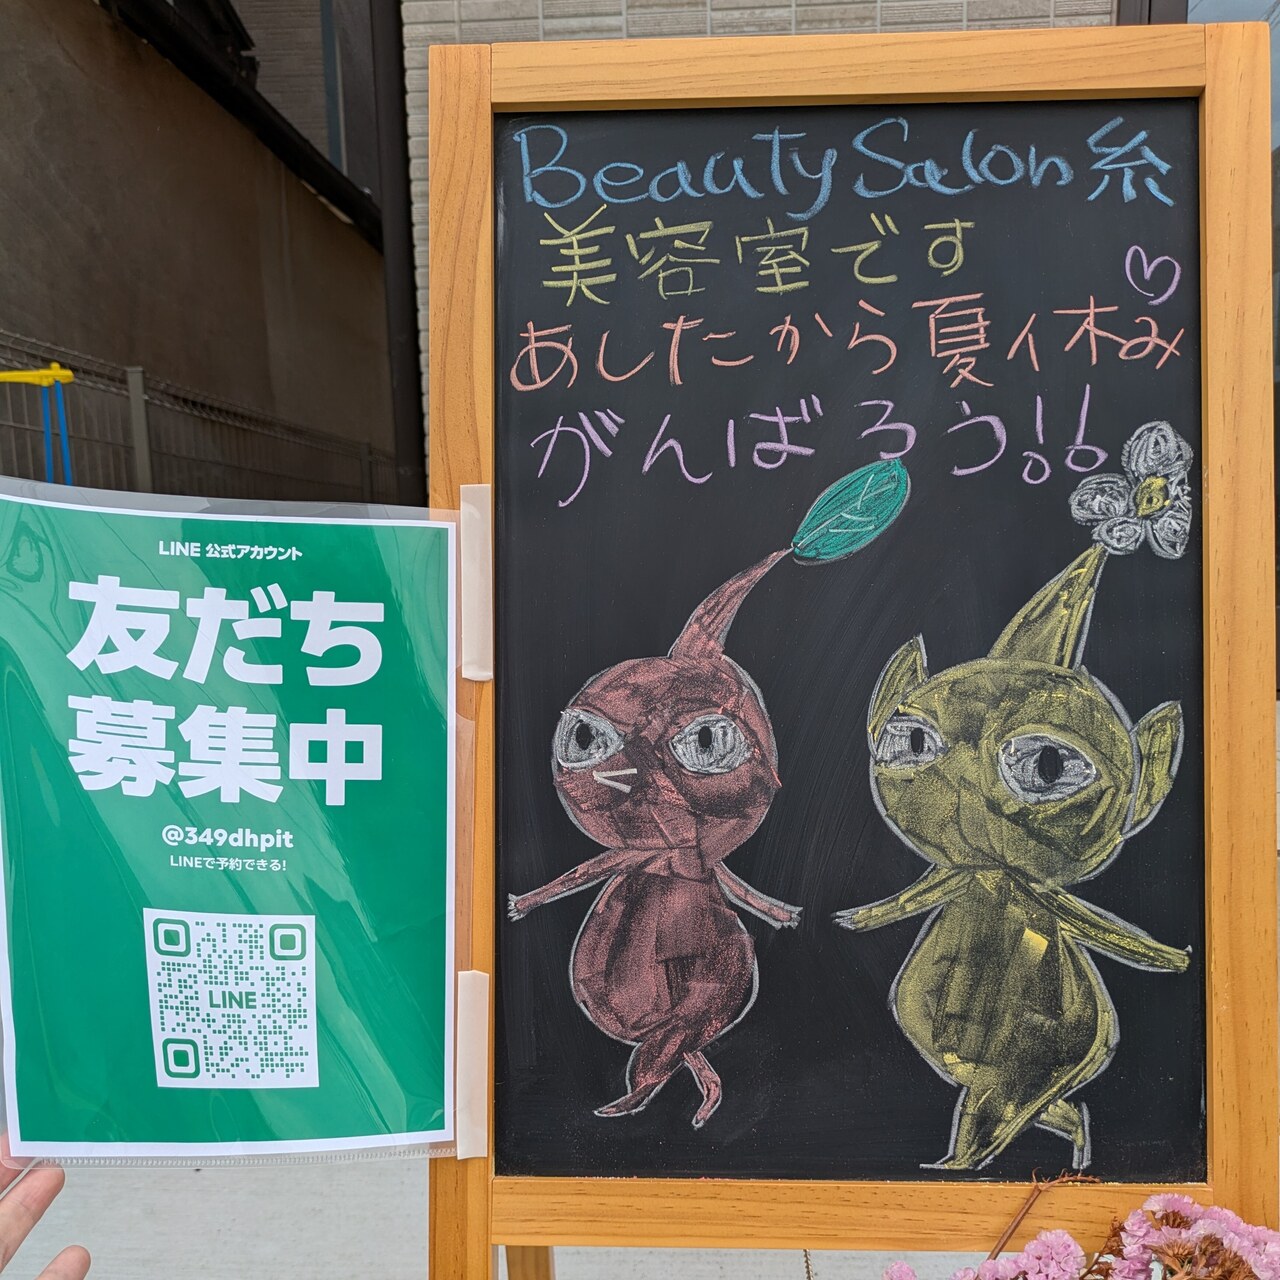 Beauty Salon 糸
美容室です
あしたから夏休み
がんばろう!!
LINE 公式アカウント
友だち
募集中
@349dhpit
LINEで予約できる!
LINE